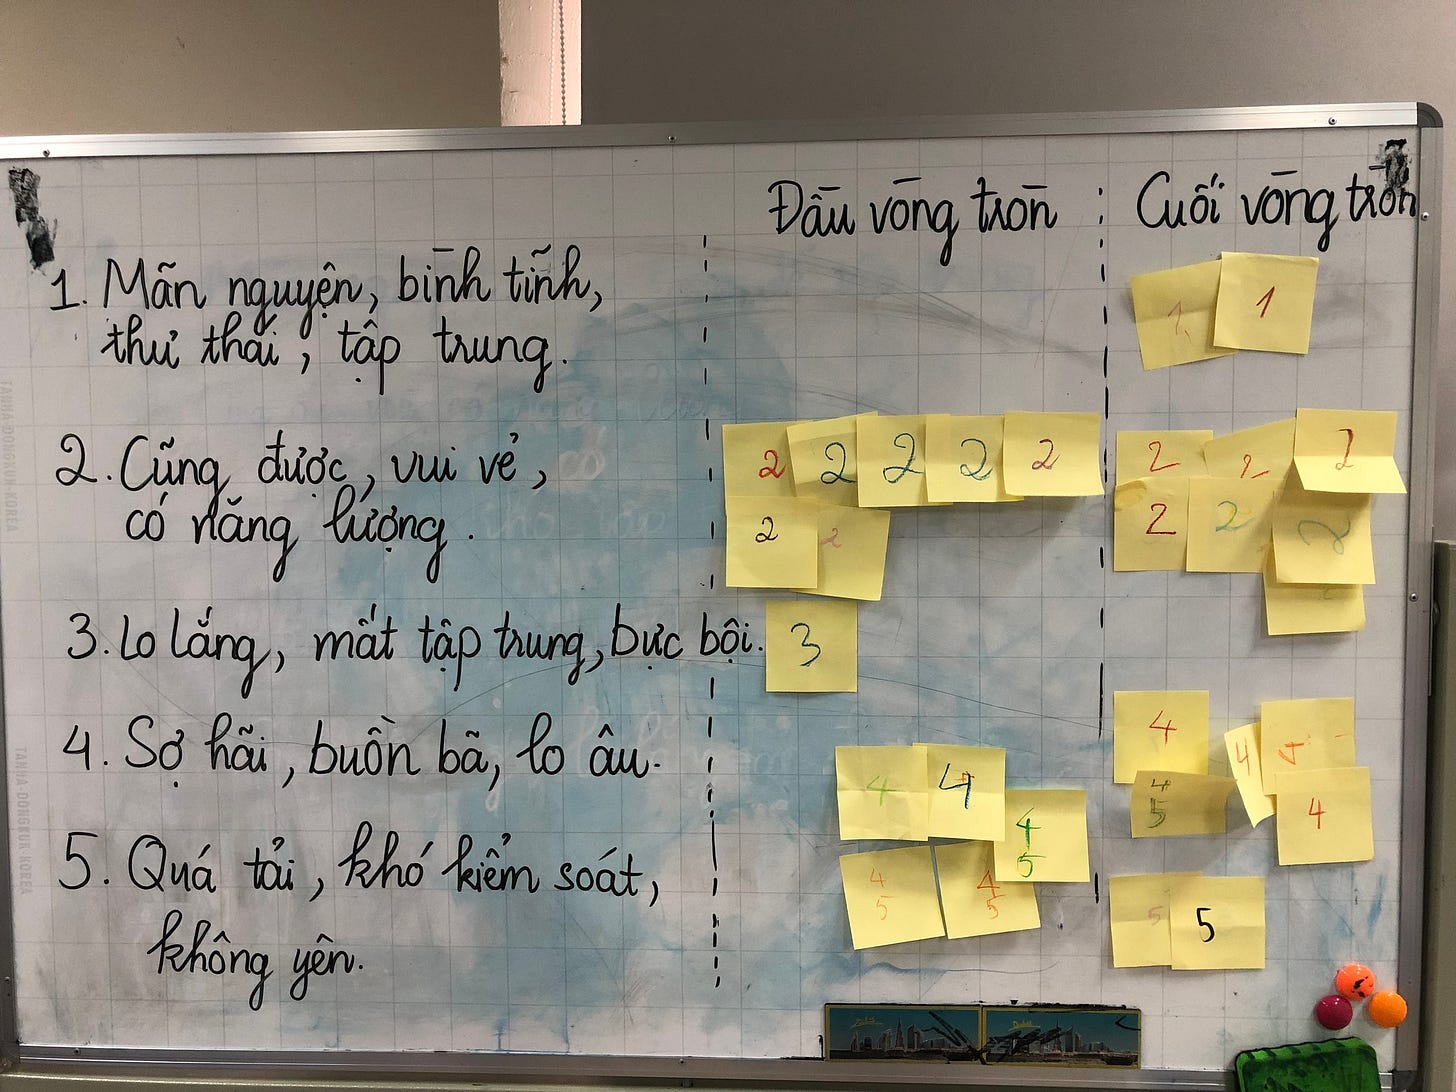 Đầu vòng tròn
Cuối vòng tròn
1. Mãn nguyện, bình tĩnh,
thư thái, tập trung.
1
1
2. Cũng được, vui vẻ,
có năng lượng.
2
2
2
2
2
2
2
2
2
2
2
2
2
3. Lo lắng, mất tập trung, bực bội.
3
4. Sợ hãi, buồn bã, lo âu.
4
4
4
5
4
5
4
5
4
4
5
4
4
5. Quá tải, khó kiểm soát,
không yên.
5
5
TANHA-DONGKUK-KOREA
TANHA-DONGKUK-KOREA